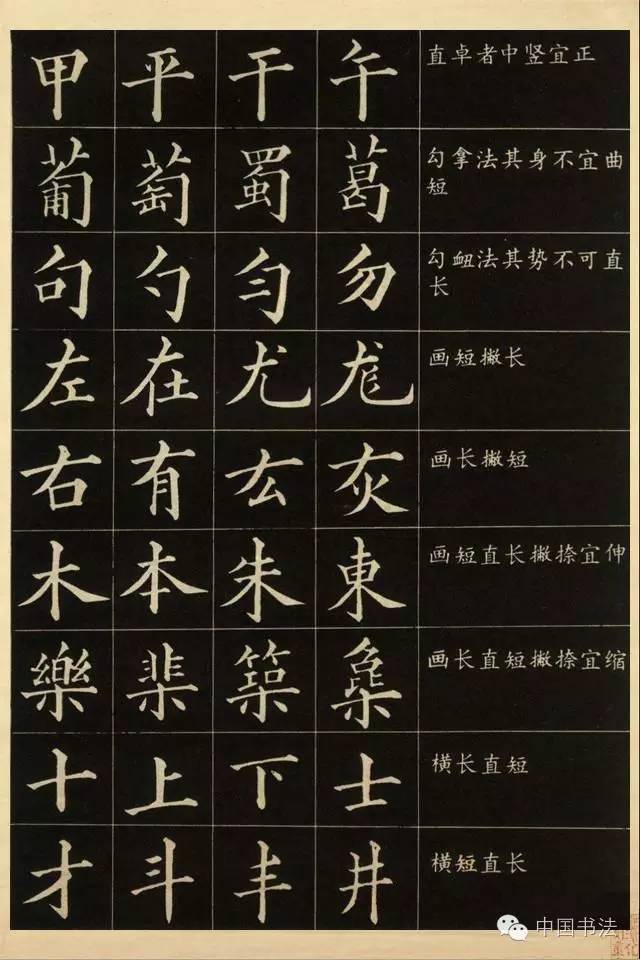 甲 平 干 午 直卓者中竖宜正
葡 萄 蜀 葛 勾拿法其身不宜曲
短
句 勺 匀 勿 勾衄法其势不可直
长
左 在 尤 尨 画短撇长
右 有 厷 灰 画长撇短
木 本 朱 東 画短直长撇捺宜伸
樂 棐 築 画长直短撇捺宜缩
十 上 下 士 横长直短
才 斗 丰 井 横短直长
中国书法